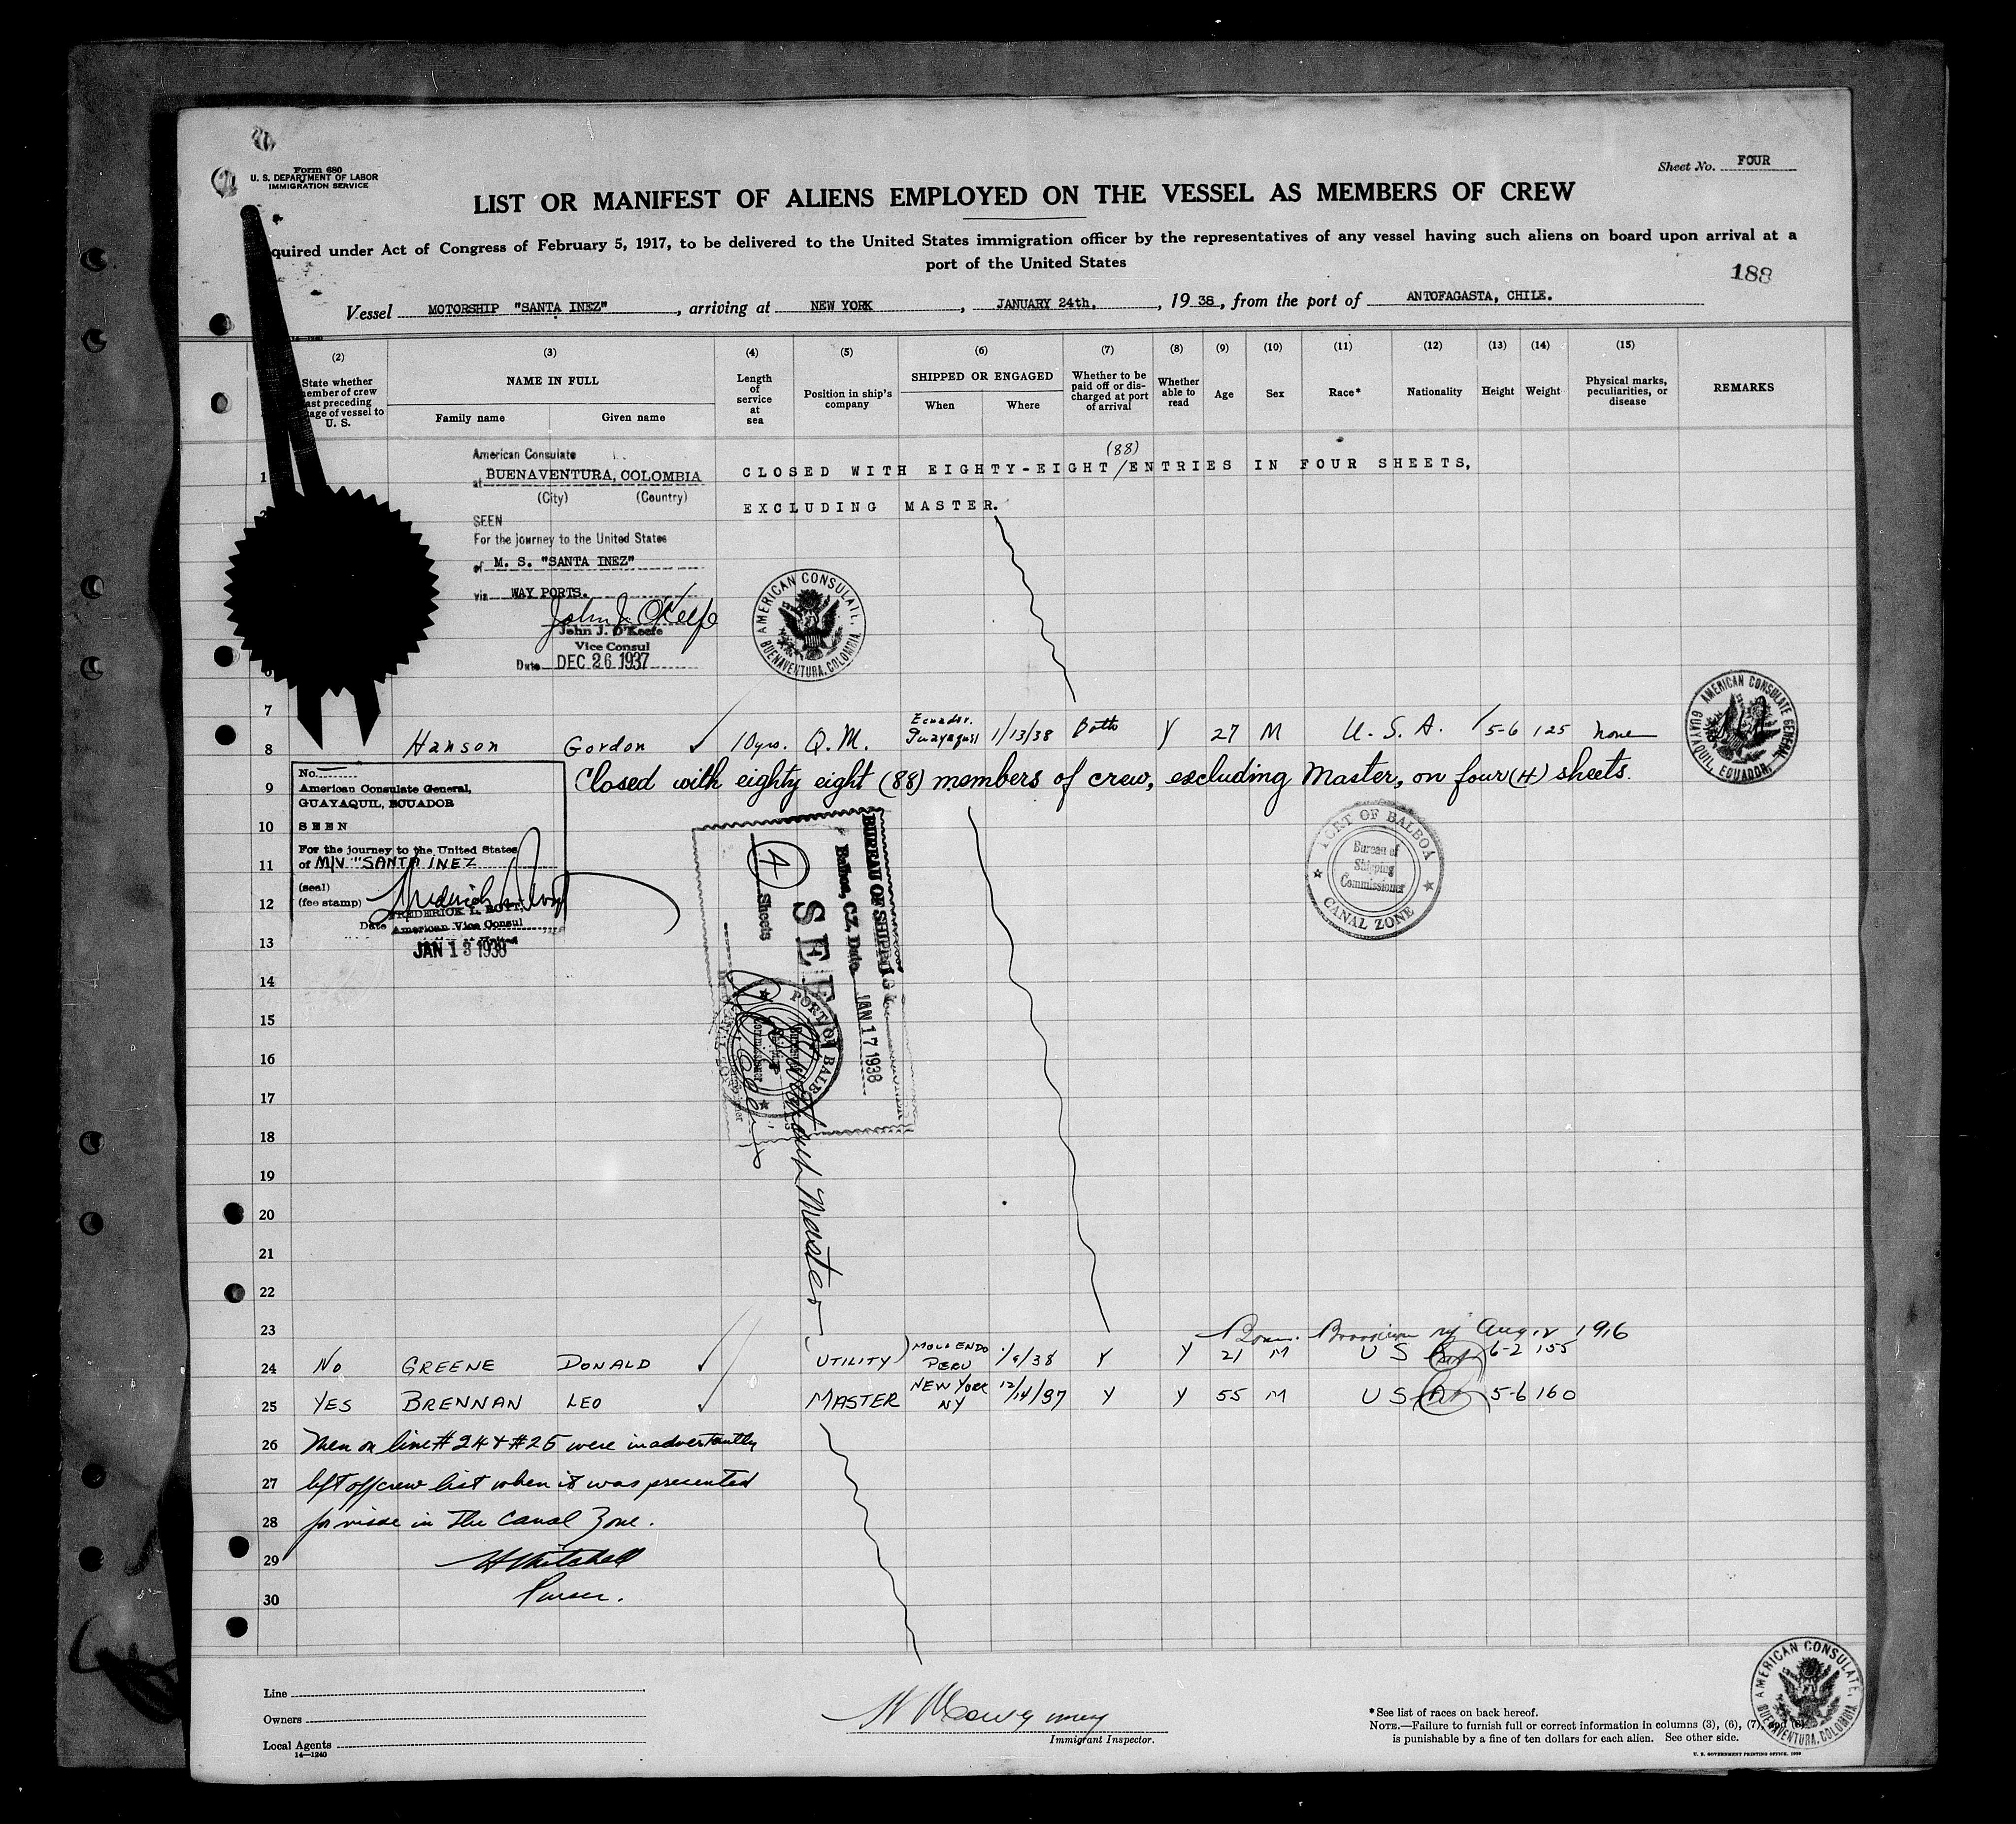 Form 680
U. S. DEPARTMENT OF LABOR
IMMIGRATION SERVICE
Sheet No. FOUR
LIST OR MANIFEST OF ALIENS EMPLOYED ON THE VESSEL AS MEMBERS OF CREW
quired under Act of Congress of February 5, 1917, to be delivered to the United States immigration officer by the representatives of any vessel having such aliens on board upon arrival at a
port of the United States
188
Vessel MOTORSHIP "SANTA INEZ", arriving at NEW YORK, JANUARY 24th., 1938, from the port of ANTOFAGASTA, CHILE.
(2) (3) (4) (5) (6) (7) (8) (9) (10) (11) (12) (13) (14) (15)
State whether
ember of crew
ast preceding
age of vessel to
U. S.
NAME IN FULL
Family name Given name
Length
of
service
at
sea
Position in ship's
company
SHIPPED OR ENGAGED
When Where
Whether to be
paid off or dis-
charged at port
of arrival
Whether
able to
read
Age
Sex
Race*
Nationality
Height
Weight
Physical marks,
peculiarities, or
disease
REMARKS
American Consulate
at BUENAVENTURA, COLOMBIA
(City) (Country)
SEEN
For the journey to the United States
of M. S. "SANTA INEZ"
via WAY PORTS.
John J. O'Keefe
John J. O'Keefe
Vice Consul
Date DEC 26 1937
(88)
1 CLOSED WITH EIGHTY-EIGHT/ENTRIES IN FOUR SHEETS,
EXCLUDING MASTER.
AMERICAN CONSULATE, BUENAVENTURA, COLOMBIA.
7
8 Hanson Gordon 10yrs. Q.M. Ecuador. Guayaquil 1/13/38 Both Y 27 M U.S.A. 5-6 125 none
AMERICAN CONSULATE GENERAL, GUAYAQUIL, ECUADOR.
9 Closed with eighty eight (88) members of crew, excluding Master, on four (4) sheets.
No.
American Consulate General,
GUAYAQUIL, ECUADOR
SEEN
For the journey to the United States
of M/V "SANTA INEZ
(seal)
(fee stamp)
FREDERICK L. ROYT
Date American Vice Consul
JAN 13 1938
10
11
12
13
14
15
16
17
18
19
20
21
22
23
BUREAU OF SHIPPING
Balboa, CZ, Date JAN 17 1938
SEEN
4 Sheets
PORT OF BALBOA
Master
PORT OF BALBOA
Bureau of
Shipping
Commissioner
CANAL ZONE
Born. Brooklyn ny Aug 12 1916
24 No GREENE DONALD (UTILITY) MOLLENDO PERU 1/6/38 Y Y 21 M US 6-2 155
25 YES BRENNAN LEO MASTER NEW YORK NY 12/14/37 Y Y 55 M US 5-6 160
26 Men on line #24 & #25 were inadvertently
27 left off crew list when it was presented
28 for visae in The Canal Zone.
29 H Mitchell
30 Purser.
Line
Owners
Local Agents
14—1240
Immigrant Inspector.
*See list of races on back hereof.
NOTE.—Failure to furnish full or correct information in columns (3), (6), (7), and (8)
is punishable by a fine of ten dollars for each alien. See other side.
U. S. GOVERNMENT PRINTING OFFICE
AMERICAN CONSULATE, BUENAVENTURA, COLOMBIA.